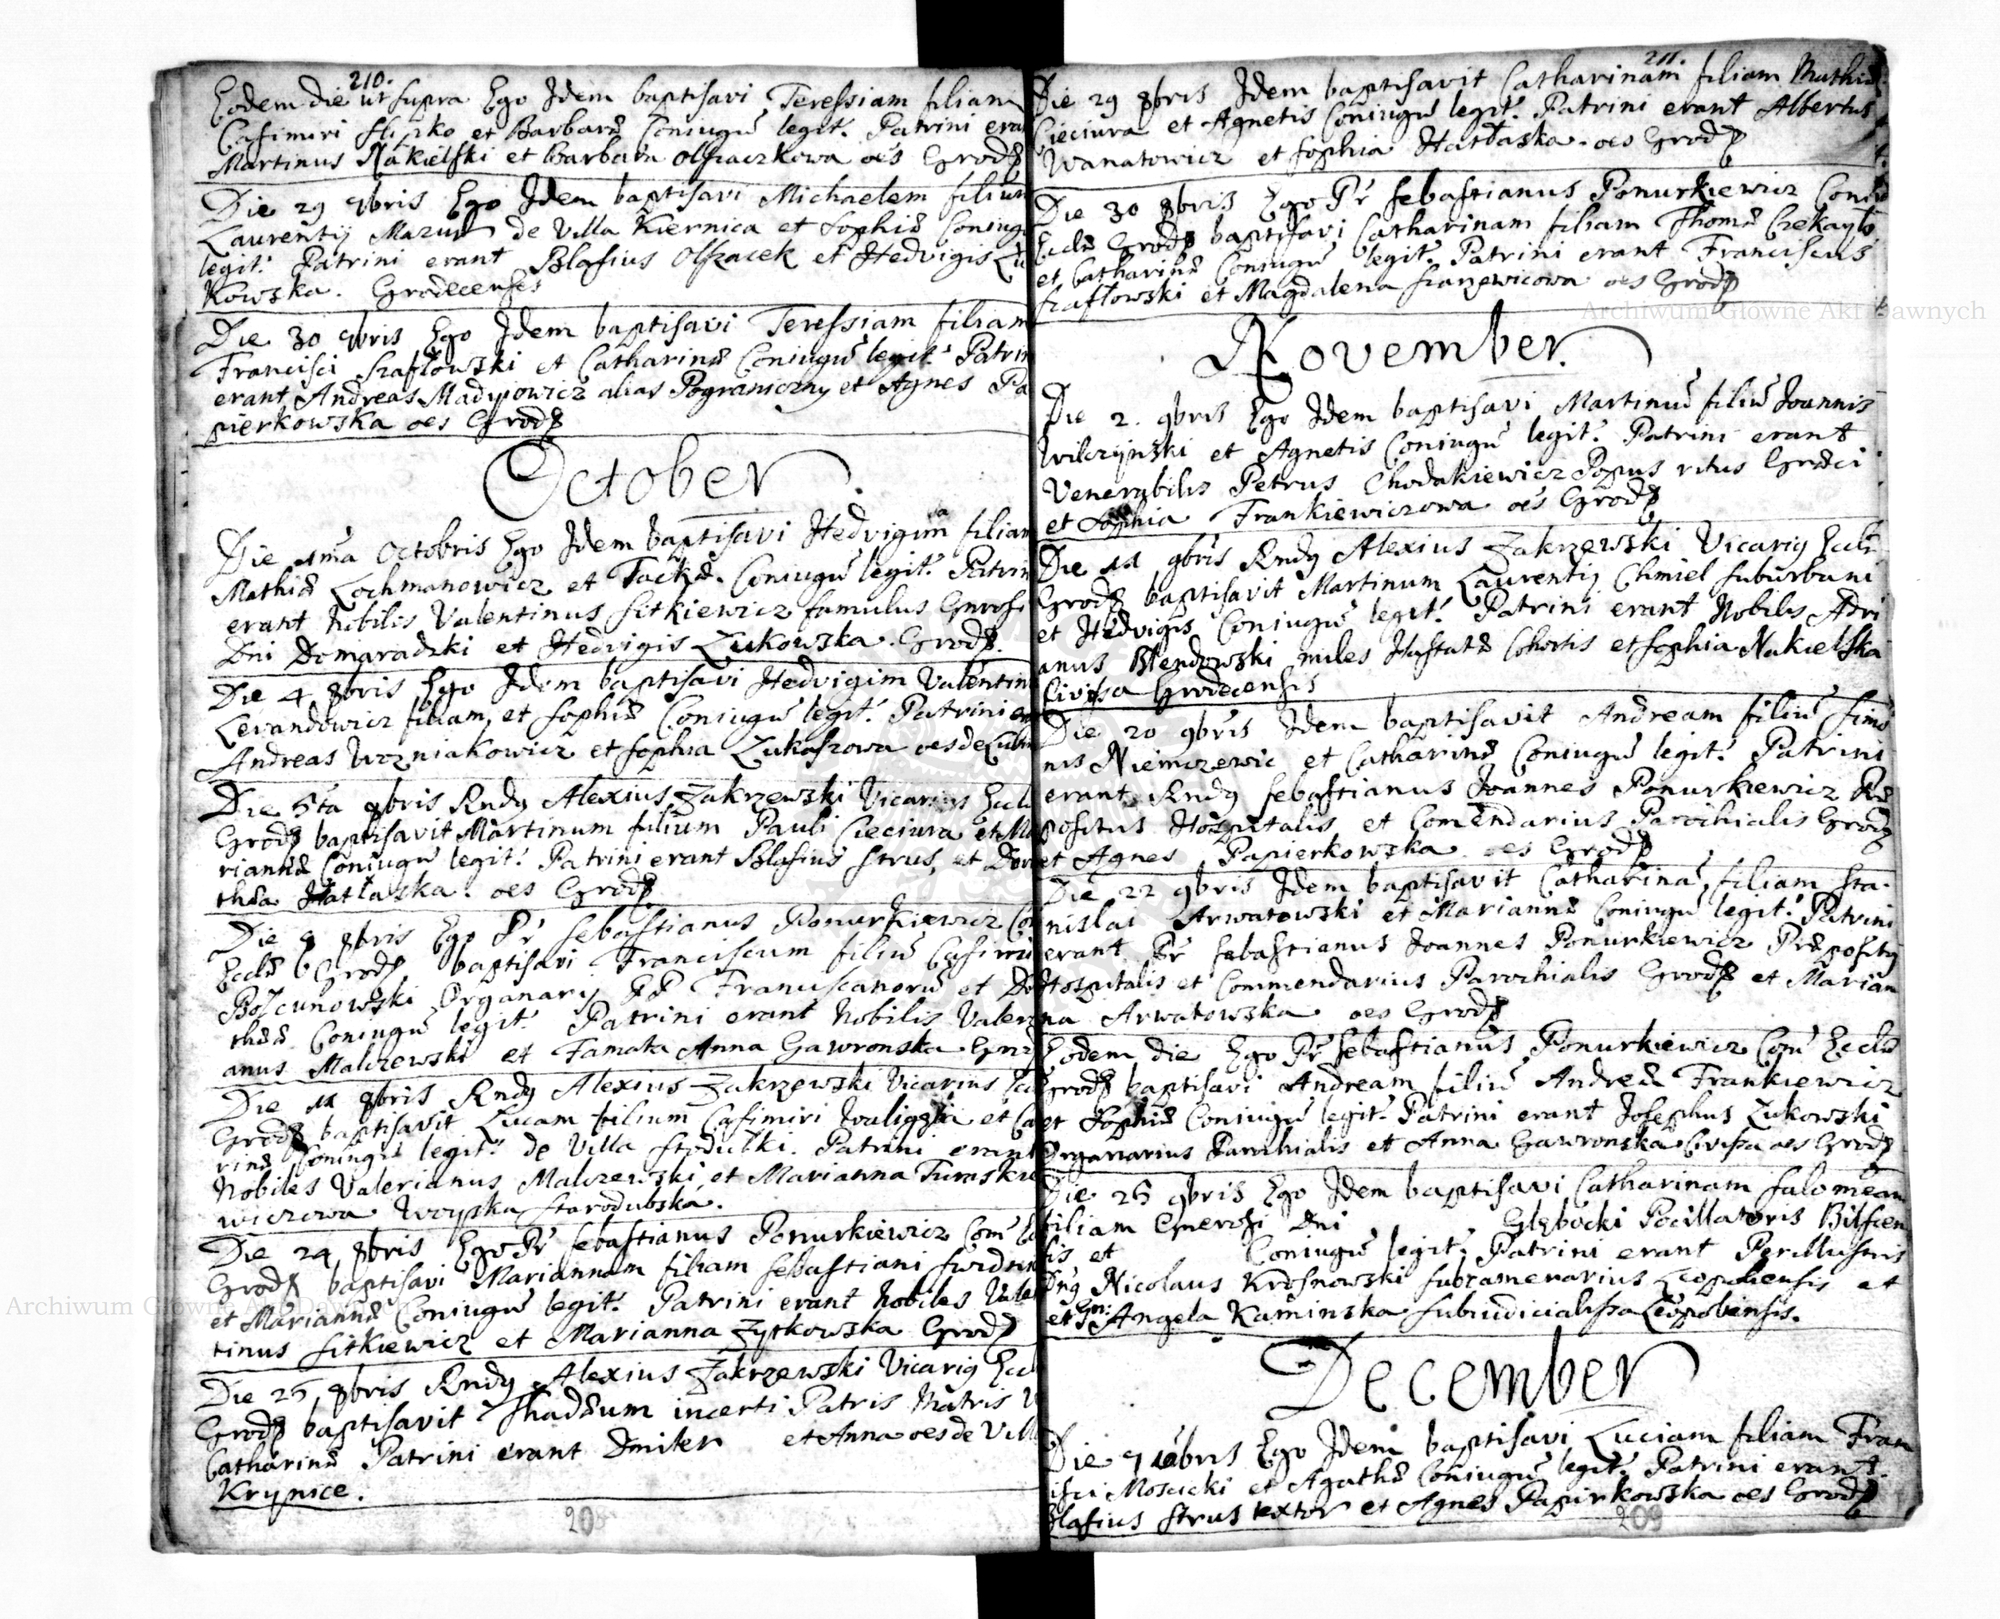 210.
Eodem die ut supra Ego Idem baptisavi Teressiam filiam
Casimiri Slipko et Barbaræ Coniugũ legit: Patrini eran
Martinus Nakielski et Barbara Olszaczkowa oēs Grod
Die 29 7bris Ego Idem baptisavi Michaelem filium
Laurentij Mazur de Villa Kiernica et Sophiæ Coniugũ
legit: Patrini erant Blasius Olszacek et Hedvigis Zu
kowska. Grodecenses
Die 30 7bris Ego Idem baptisavi Teressiam filiam
Francisci Szaflowski et Catharinæ Coniugũ legit: Patrin
erant Andreas Madyiowicz alias Pograniczny et Agnes Pa
pierkowska oēs Grod
October
Die 1ma Octobris Ego Idem baptisavi Hedvigim filiam
Mathiæ Lochmanowicz et Coniugũ legit: Patrin
erant Nobilis Valentinus Sitkiewicz famulus Gnrosi
Dni Domaradzki et Hedvigis Zukowska. Grod.
Die 4 8bris Ego Idem baptisavi Hedvigim Valentin
Levandowicz filiam, et Sophiæ Coniugũ legit: Patrini er
Andreas Wozniakowicz et Sophia Zukaszowa oēs de
Die 5ta 8bris Rndg Alexius Zakrzewski Vicarius Eccl
Grod baptisavit Martinum filium Pauli Cieciura et Ma
riannæ Coniugũ legit: Patrini erant Blasius Strus, et Doro
thea Hatłaska. oēs Grod
Die 9 8bris Ego Pr Sebastianus Ponurkiewicz Co
Eccle Grod baptisavi Franciscum filiũ Casimiri
Bozcunowski Organarij PP Franciscanorũ et Do
theæ Coniugũ legit: Patrini erant Nobilis Valeri
anus Malczewski et Famata Anna Gawronska Gr
Die 11 8bris Rndg Alexius Zakrzewski Vicarius Ec
Grod baptisavit Lucam filium Casimiri Waligski et Ca
rinæ Coniugũ legit: de Villa Stodulki. Patrini erant
Nobiles Valerianus Malczewski, et Marianna Tumskie
wiczowa Woyska Starodubska.
Die 24 8bris Ego Pr Sebastianus Ponurkiewicz Com Ec
Grod baptisavi Mariannam filiam Sebastiani
et Mariannæ Coniugũ legit: Patrini erant Nobiles Vale
tinus Sitkiewicz et Marianna Zytkowska Grod
Die 25 8bris Rndg Alexius Zakrzewski Vicarig Eccl
Grod baptisavit Thadæum incerti Patris Matris V
Catharinæ Patrini erant Dmiter et Anna oēs de Villa
Krynice.
208
211.
Die 29 8bris Idem baptisavit Catharinam filiam Mathiæ
Cieciura et Agnetis Coniugũ legit: Patrini erant Albertus
Wanatowicz et Sophia Hatłaska. oēs Grod
Die 30 8bris Ego Pr Sebastianus Ponurkiewicz Com
Eccle Grod baptisavi Catharinam filiam Thomæ Czekayło
et Catharinæ Coniugũ legit: Patrini erant Franciscus
Szafłowski et Magdalena oēs Grod
November.
Die 2. 9bris Ego Idem baptisavi Martinũ filiũ Joannis
Wilczynski et Agnetis Coniugũ legit: Patrini erant
Venerabilis Petrus Chodakiewicz Popus ritus Græci
et Sophia Frankiewiczowa oēs Grod
Die 11 9bris Rndg Alexius Zakrzewski Vicarig Eccle
Grod baptisavit Martinum Laurentij Chmiel suburbani
et Hedvigis Coniugũ legit: Patrini erant Nobilis Adri
anus Blendowski miles Hastatæ Cohortis et Sophia Nakielska
Civissa Grodecensis
Die 20 9bris Idem baptisavit Andream filiũ Simo
nis Niemczewic et Catharinæ Coniugũ legit: Patrini
erant Rndg Sebastianus Joannes Ponurkiewicz Præ
positus Hospitalis et Comendarius Parochialis Grod
et Agnes Papierkowska oēs Grod
Die 22 9bris Idem baptisavit Catharinã filiam Sta-
nislai Arwatowski et Mariannæ Coniugũ legit: Patrini
erant Pr Sebastianus Joannes Ponurkiewicz Præpositg
Hospitalis et Commendarius Parochialis Grod et Marian
na Arwatowska oēs Grod
Eodem die Ego Pr Sebastianus Ponurkiewicz Com Eccle
Grod baptisavi Andream filiũ Andreæ Frankiewicz
et Sophiæ Coniugũ legit: Patrini erant Josephus Zukowski
Organarius Parochialis et Anna Gawronska Civissa oēs Grod
Die 25 9bris Ego Idem baptisavi Catharinam Salomeam
filiam Generosi Dni Głębocki Pocillatoris Bilscen
sis et Coniugũ legit: Patrini erant Perillustris
Dng Nicolaus Krosnowski Subcamerarius Leopoliensis et
et Gn: Angela Kaminska Subiudicialissa Leopoliensis.
December
Die 7 10bris Ego Idem baptisavi Luciam filiam Fran
cisci Moscicki et Agathæ Coniugũ legit: Patrini erant
Blasius Strus textor et Agnes Papirkowska oēs Grod
209
Archiwum Główne Akt Dawnych
Archiwum Główne Akt Dawnych